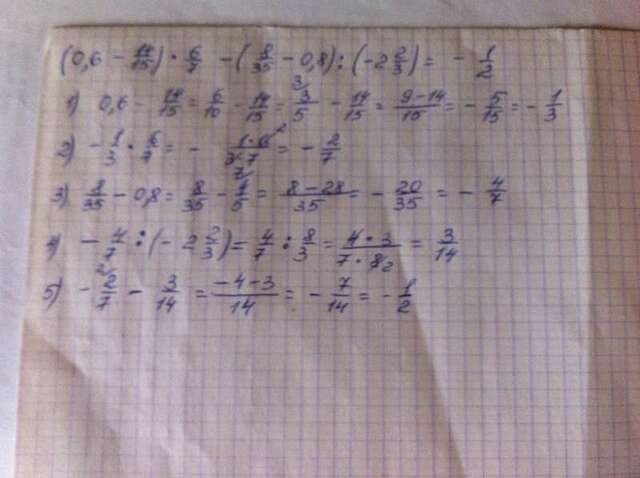 (0,6 - 14/15) · 6/7 - (8/35 - 0,8) : (-2 2/3) = - 1/2
1) 0,6 - 14/15 = 6/10 - 14/15 = 3/5 - 14/15 = 9-14/15 = - 5/15 = - 1/3
2) - 1/3 · 6/7 = - 1·6/3·7 = - 2/7
3) 8/35 - 0,8 = 8/35 - 4/5 = 8-28/35 = - 20/35 = - 4/7
4) - 4/7 : (-2 2/3) = 4/7 : 8/3 = 4·3/7·8 = 3/14
5) - 2/7 - 3/14 = -4-3/14 = - 7/14 = - 1/2